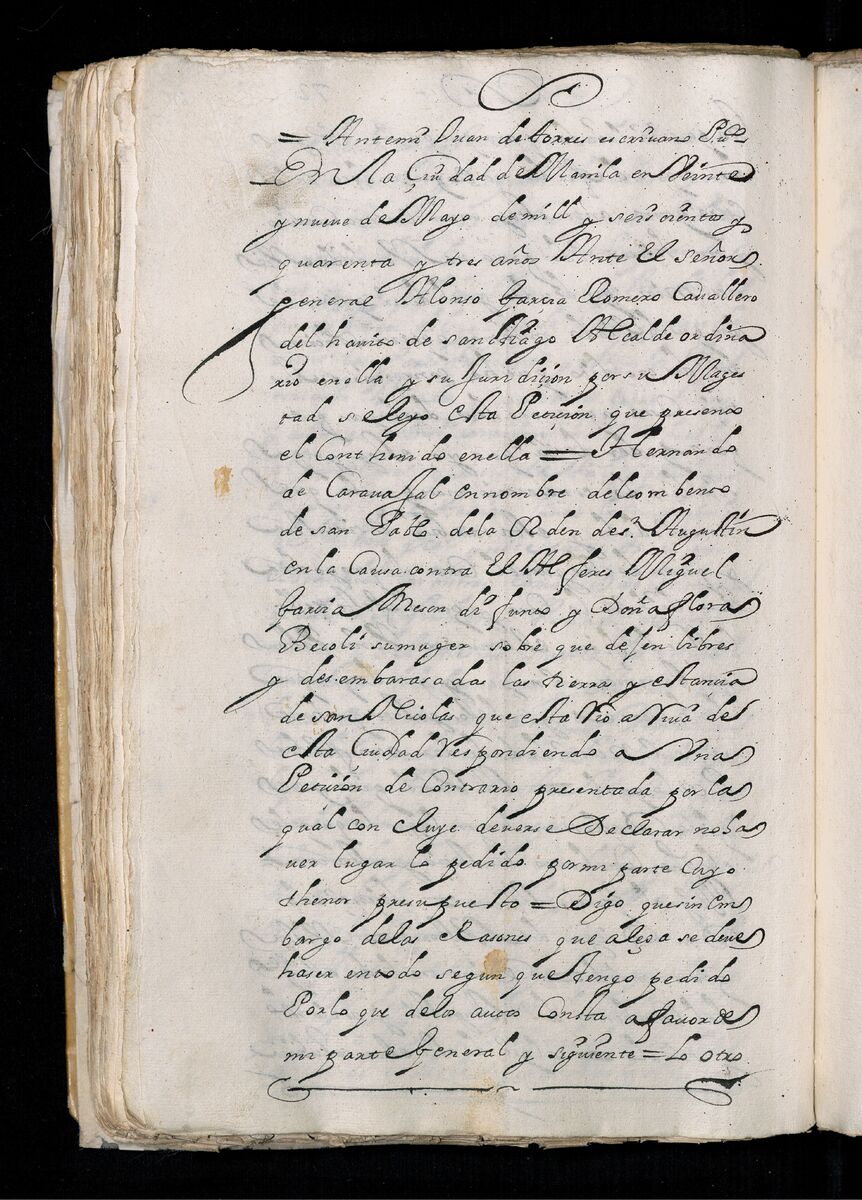 = Antemi Juan de torres escriuano Puco
En la Ciudad de Manila en Veinte
y nueue de Mayo de mill y seiscientos y
quarenta y tres años Ante El señor
general Alonso garçia Romero Cauallero
del hauito de sanctiago Alcalde ordina
rio en ella y su Juridiçion por su Mages
tad se leyo esta Petiçion que presento
el Conthenido en ella = Hernando
de Carauajal en nombre del combento
de san Pablo de la Orden de s.n Augustin
en la Causa contra El Alferes Miguel
garcia Meson difunto y Doña flora
Becoli su muger sobre que dejen libres
y desembarasadas las tierras y estançia
de san Nicolas que esta Rio arriua de
esta Ciudad Respondiendo a Vna
Petiçion de Contrario presentada por la
qual concluye deuerse Declarar no ha
uer lugar lo pedido por mi parte Cuyo
thenor presupuesto = Digo que sin em
bargo de las Rasones que alega se deue
haser en todo segun que tengo pedido
Por lo que de los autos Consta a fauor de
mi parte general y siguiente = Lo otro